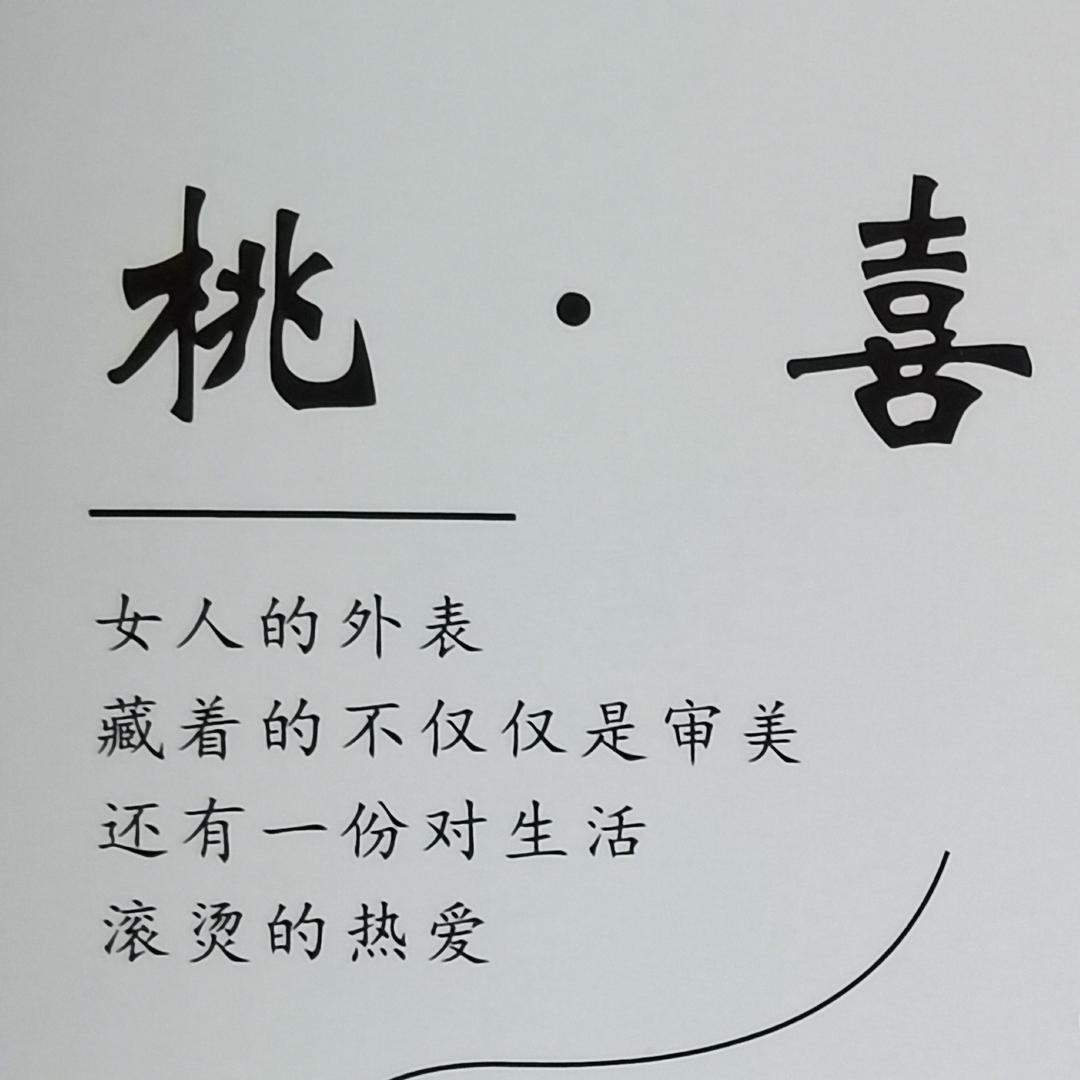 桃·喜
女人的外表
藏着的不仅仅是审美
还有一份对生活
滚烫的热爱